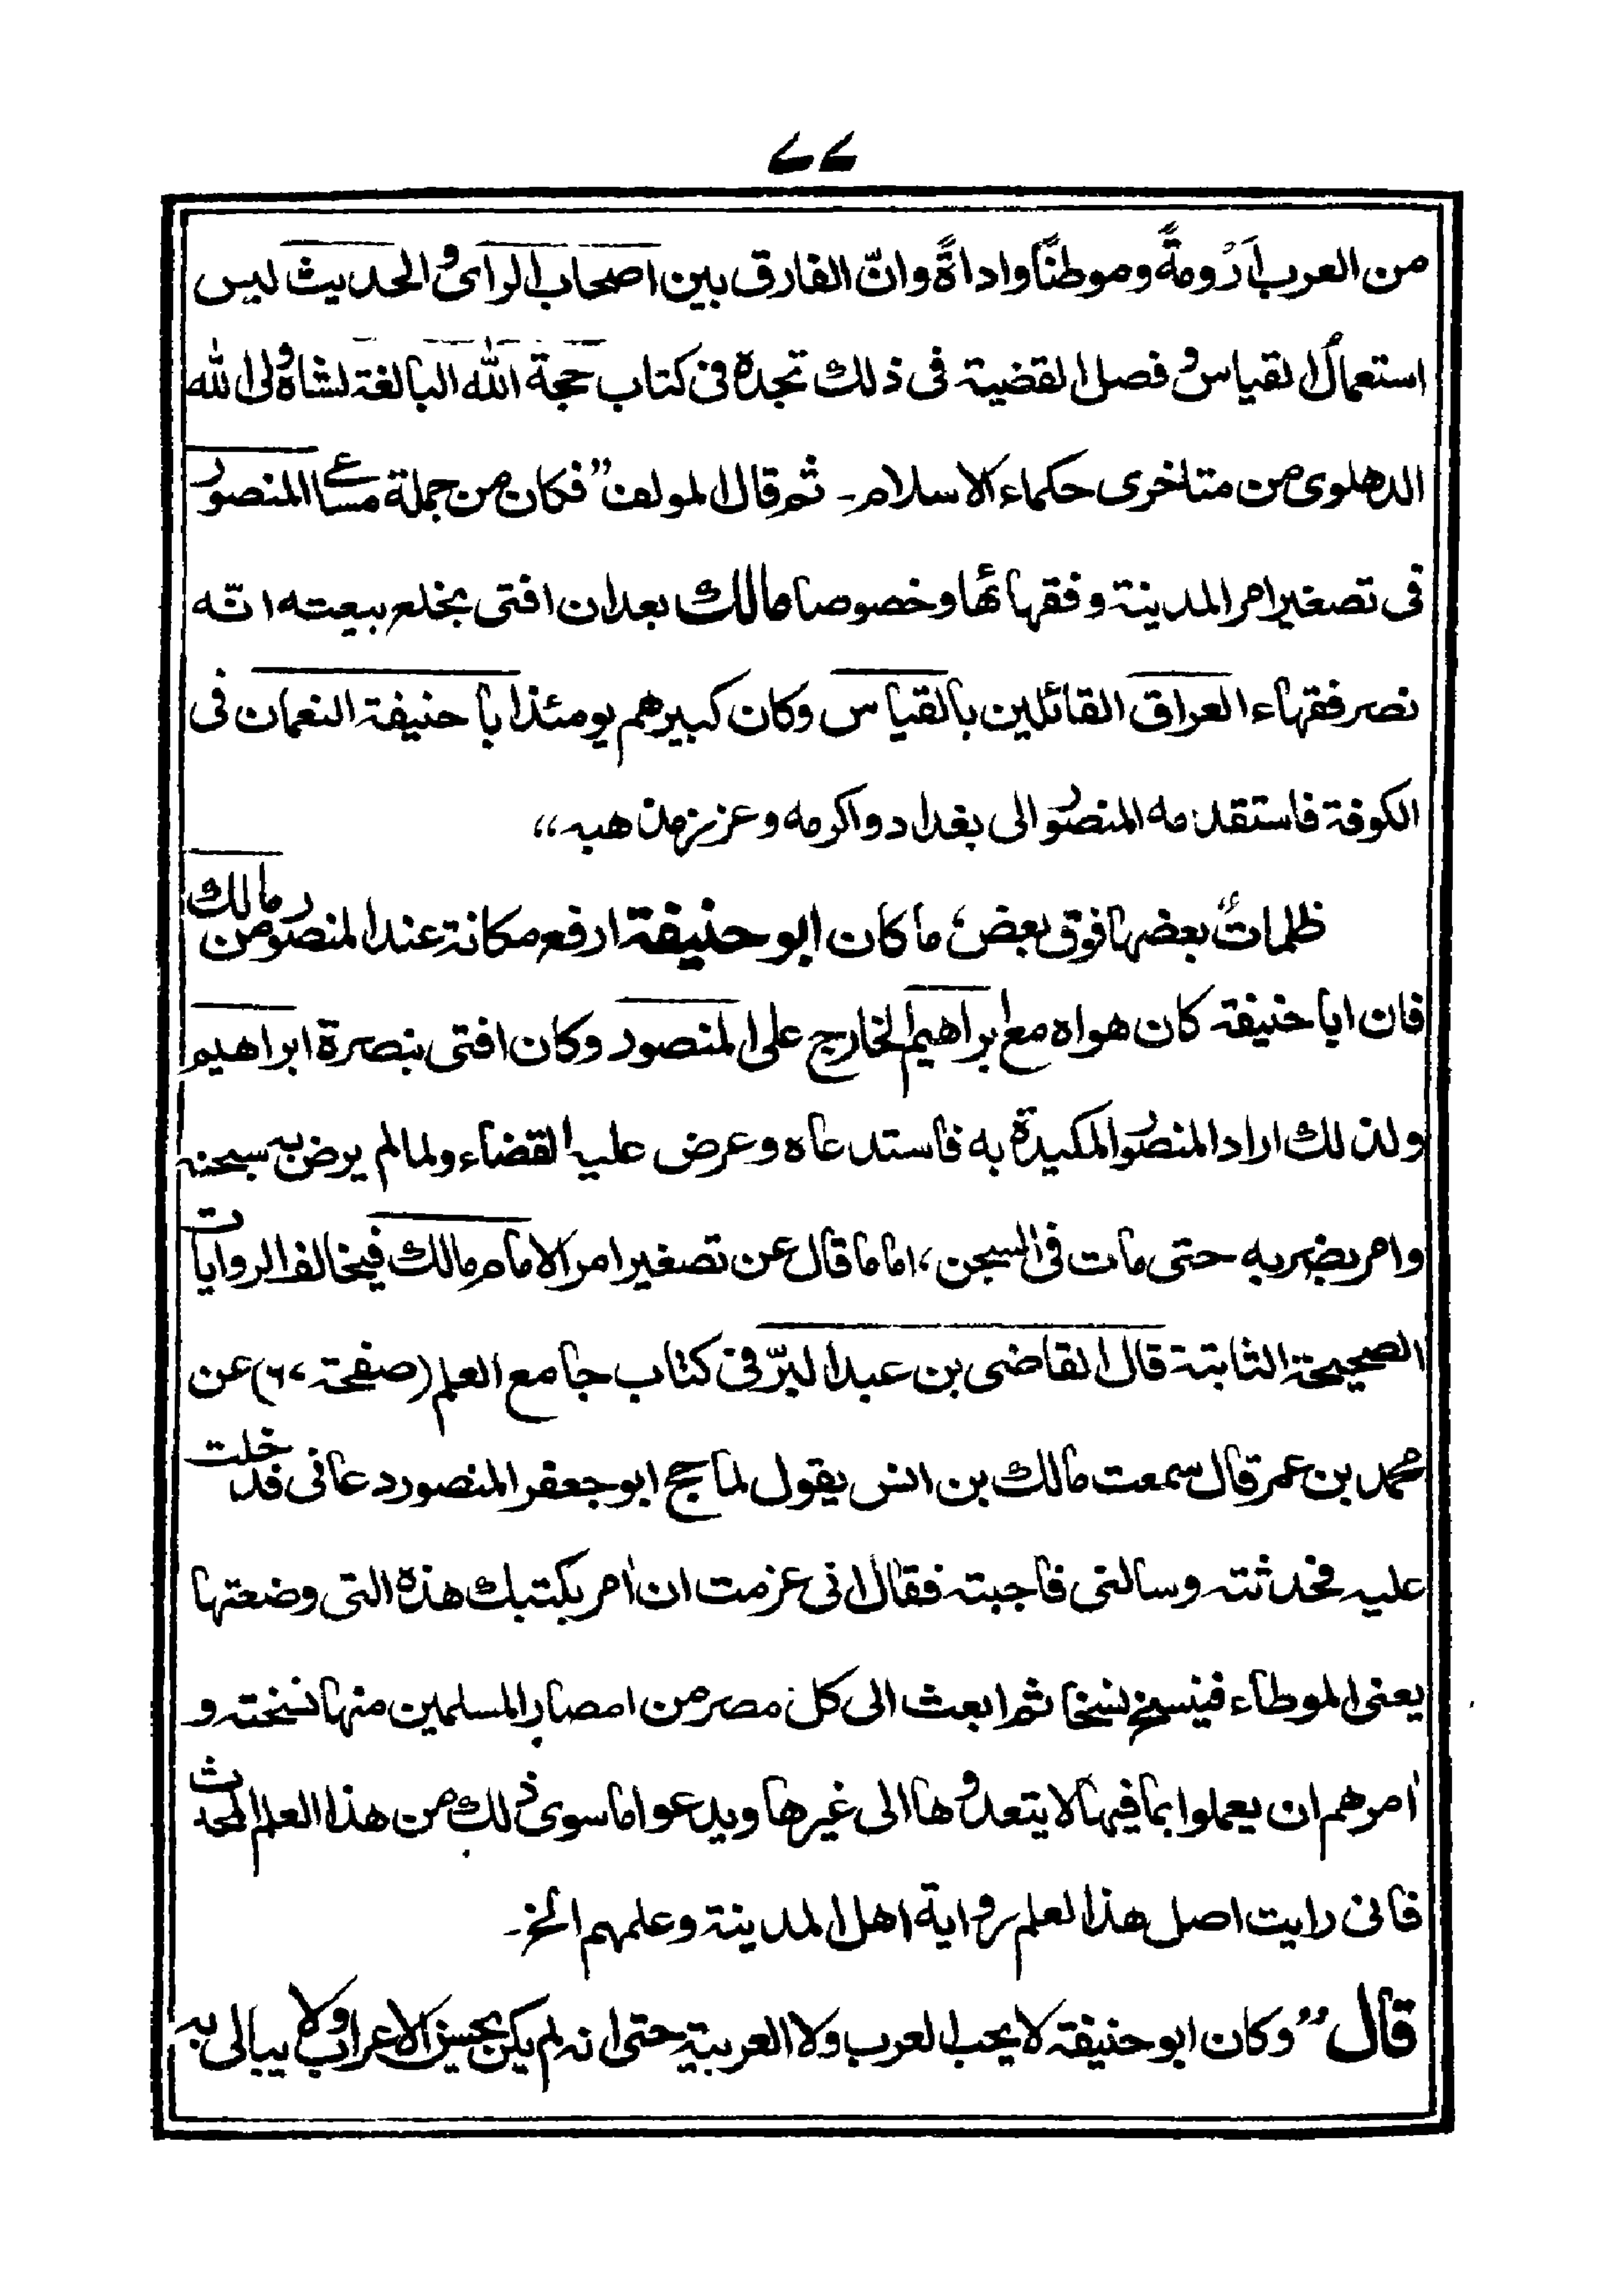 ۷۷
من العرب اَرُومةً وموطنًا واداةً وانّ الفارق بين اصحاب الرای والحديث ليس
استعمال القياس وفصل القضية فی ذلك تجده فی كتاب حجة الله البالغة لشاه ولی الله
الدهلوی من متاخری حكماء الاسلام۔ ثم قال المولف ”فكان من جملة مساعی المنصور
فی تصغير امر المدينة وفقهائها وخصوصا مالك بعد ان افتی بخلع بيعته انّه
نصر فقهاء العراق القائلين بالقياس وكان كبيرهم يومئذ ابا حنيفة النعمان فی
الكوفة فاستقدمه المنصور الی بغداد واكرمه وعزز مذهبه“
ظلماتٌ بعضها فوق بعض، ما كان ابو حنيفة ارفع مكانة عند المنصور من مالك
فان ابا حنيفة كان هواه مع ابراهيم الخارج علی المنصور وكان افتی بنصرة ابراهيم
ولذلك اراد المنصور المكيدة به فاستدعاه وعرض عليه القضاء ولما لم يرض به سجنه
وامر بضربه حتی مات فی السجن، اما ما قال عن تصغير امر الامام مالك فيخالف الروايات
الصحيحة الثابتة قال القاضی بن عبد البرّ فی كتاب جامع العلم (صفحة ۶۰) عن
محمد بن عمر قال سمعت مالك بن انس يقول لما حج ابو جعفر المنصور دعانی فدخلت
عليه فحدثته وسالنی فاجبته فقال انی عزمت ان اٰمر بكتبك هذه التی وضعتها
يعنی الموطاء فينسخ نسخا ثم ابعث الی كل مصر من امصار المسلمين منها نسخته و
اٰمرهم ان يعملوا بما فيها لا يتعدوها الی غيرها ويدعوا ما سوی ذلك من هذا العلم المحدث
فانی رايت اصل هذا لعلم رواية اهل المدينة وعلمهم الخ۔
قال ”وكان ابو حنيفة لا يحب العرب ولا العربية حتی انه لم يكن يحسن الاعراب ولا يبالی به